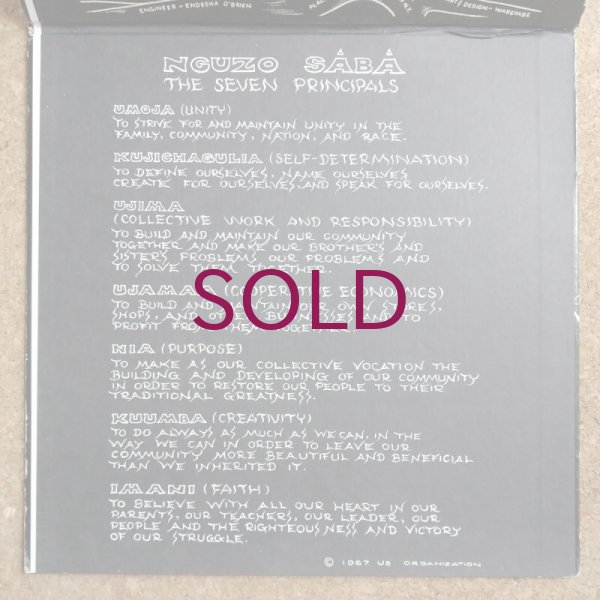 ENGINEER - ENDESHA O'BRIEN
DESIGN - WADEMBE
NGUZO SABA
THE SEVEN PRINCIPALS
UMOJA (UNITY)
TO STRIVE FOR AND MAINTAIN UNITY IN THE
FAMILY, COMMUNITY, NATION, AND RACE.
KUJICHAGULIA (SELF-DETERMINATION)
TO DEFINE OURSELVES, NAME OURSELVES
CREATE FOR OURSELVES, AND SPEAK FOR OURSELVES.
UJIMA
(COLLECTIVE WORK AND RESPONSIBILITY)
TO BUILD AND MAINTAIN OUR COMMUNITY
TOGETHER AND MAKE OUR BROTHER'S AND
SISTER'S PROBLEMS OUR PROBLEMS AND
TO SOLVE THEM TOGETHER.
UJAMAA (COOPERATIVE ECONOMICS)
TO BUILD AND MAINTAIN OUR OWN STORES,
SHOPS, AND OTHER BUSINESSES AND TO
PROFIT FROM THEM TOGETHER.
SOLD
NIA (PURPOSE)
TO MAKE AS OUR COLLECTIVE VOCATION THE
BUILDING AND DEVELOPING OF OUR COMMUNITY
IN ORDER TO RESTORE OUR PEOPLE TO THEIR
TRADITIONAL GREATNESS.
KUUMBA (CREATIVITY)
TO DO ALWAYS AS MUCH AS WE CAN, IN THE
WAY WE CAN IN ORDER TO LEAVE OUR
COMMUNITY MORE BEAUTIFUL AND BENEFICIAL
THAN WE INHERITED IT.
IMANI (FAITH)
TO BELIEVE WITH ALL OUR HEART IN OUR
PARENTS, OUR TEACHERS, OUR LEADER, OUR
PEOPLE AND THE RIGHTEOUSNESS AND VICTORY
OF OUR STRUGGLE.
© 1967 US ORGANIZATION